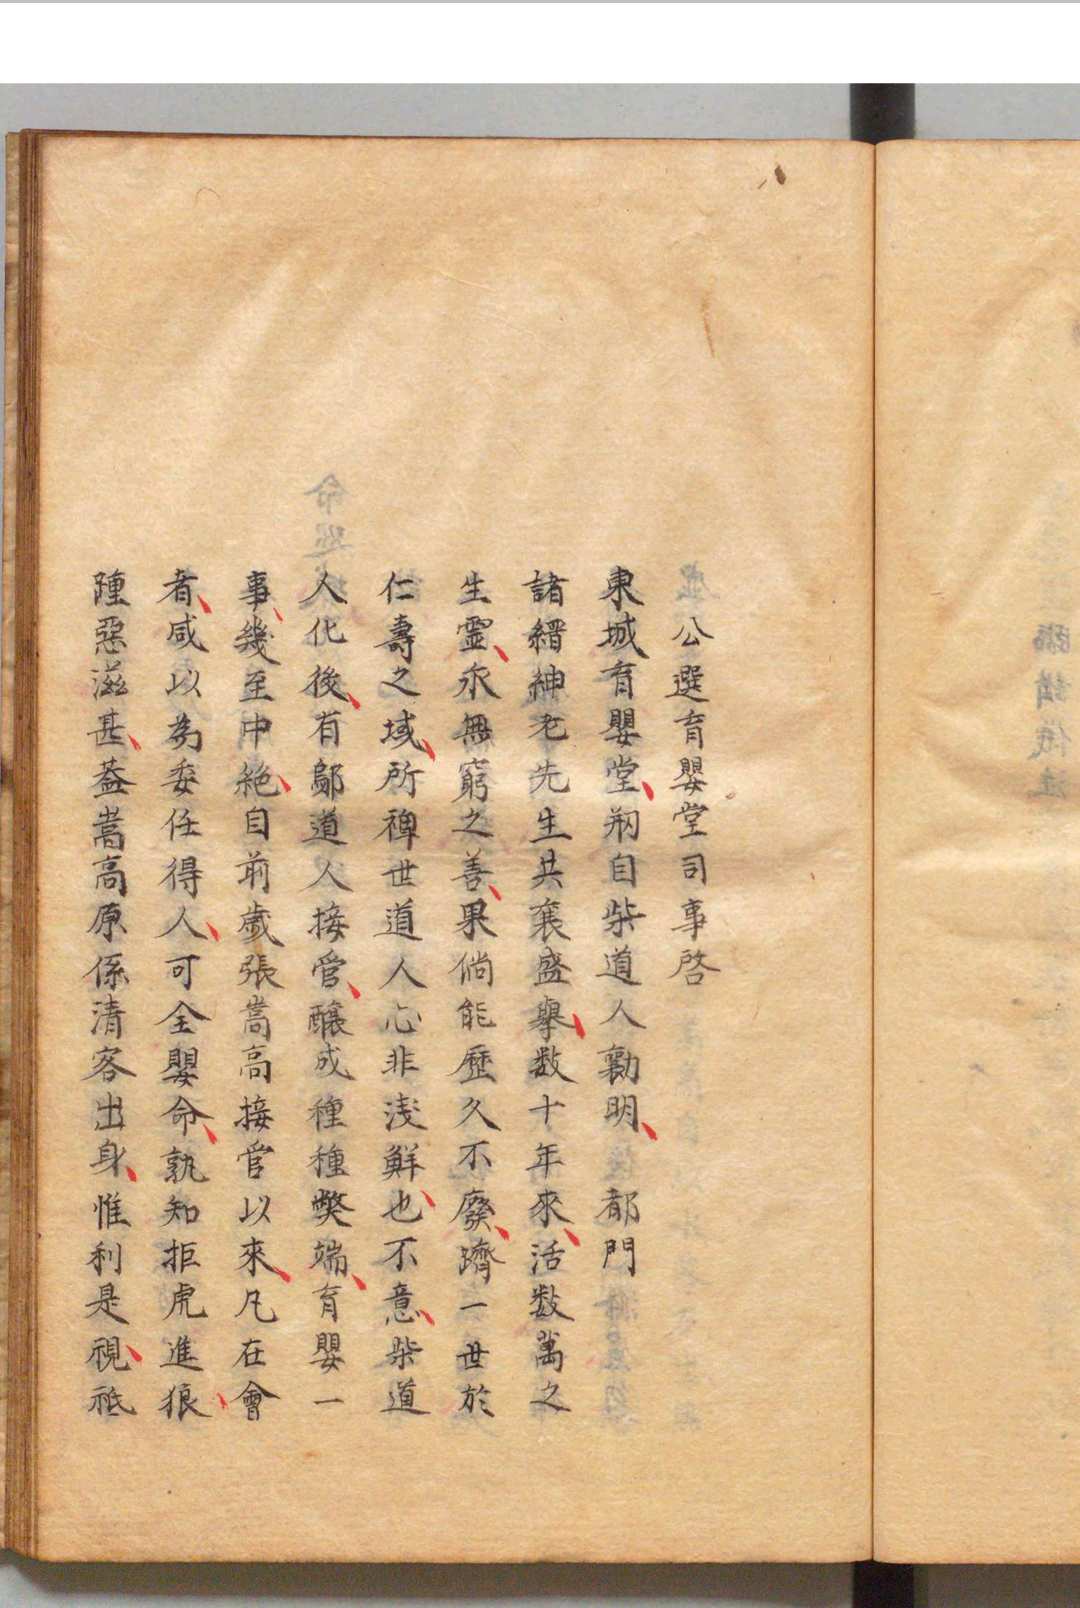 公選育嬰堂司事啓
東城育嬰堂刱自柴道人勷明都門
諸縉紳老先生共襄盛擧数十年來活数萬之
生靈永無窮之善果倘能歷久不廢躋一世於
仁壽之域所裨世道人心非淺鮮也不意柴道
人化後有鄔道人接管釀成種種獘端育嬰一
事幾至中絶自前歲張嵩高接管以來凡在會
者咸以為委任得人可全嬰命孰知拒虎進狼
踵惡滋甚葢嵩高原係清客出身惟利是視祗